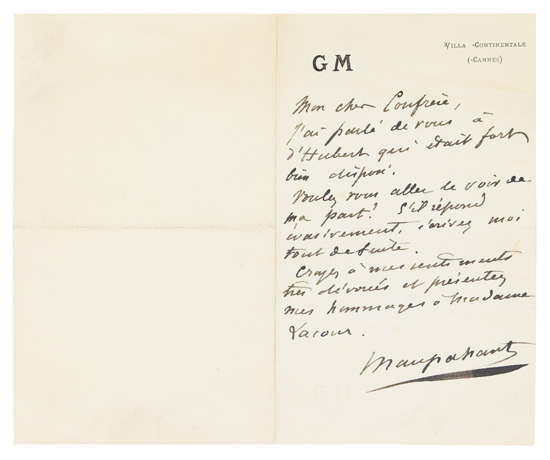 VILLA -CONTINENTALE
(-CANNES)
GM
Mon cher Confrère,
J'ai parlé de vous à
d'Hubert qui était fort
bien disposé.
Voulez vous aller le voir de
ma part? S'il répond
évasivement, écrivez moi
tout de suite.
Croyez à mes sentiments
très dévoués et présentez
mes hommages à Madame
Lacour.
Maupassant